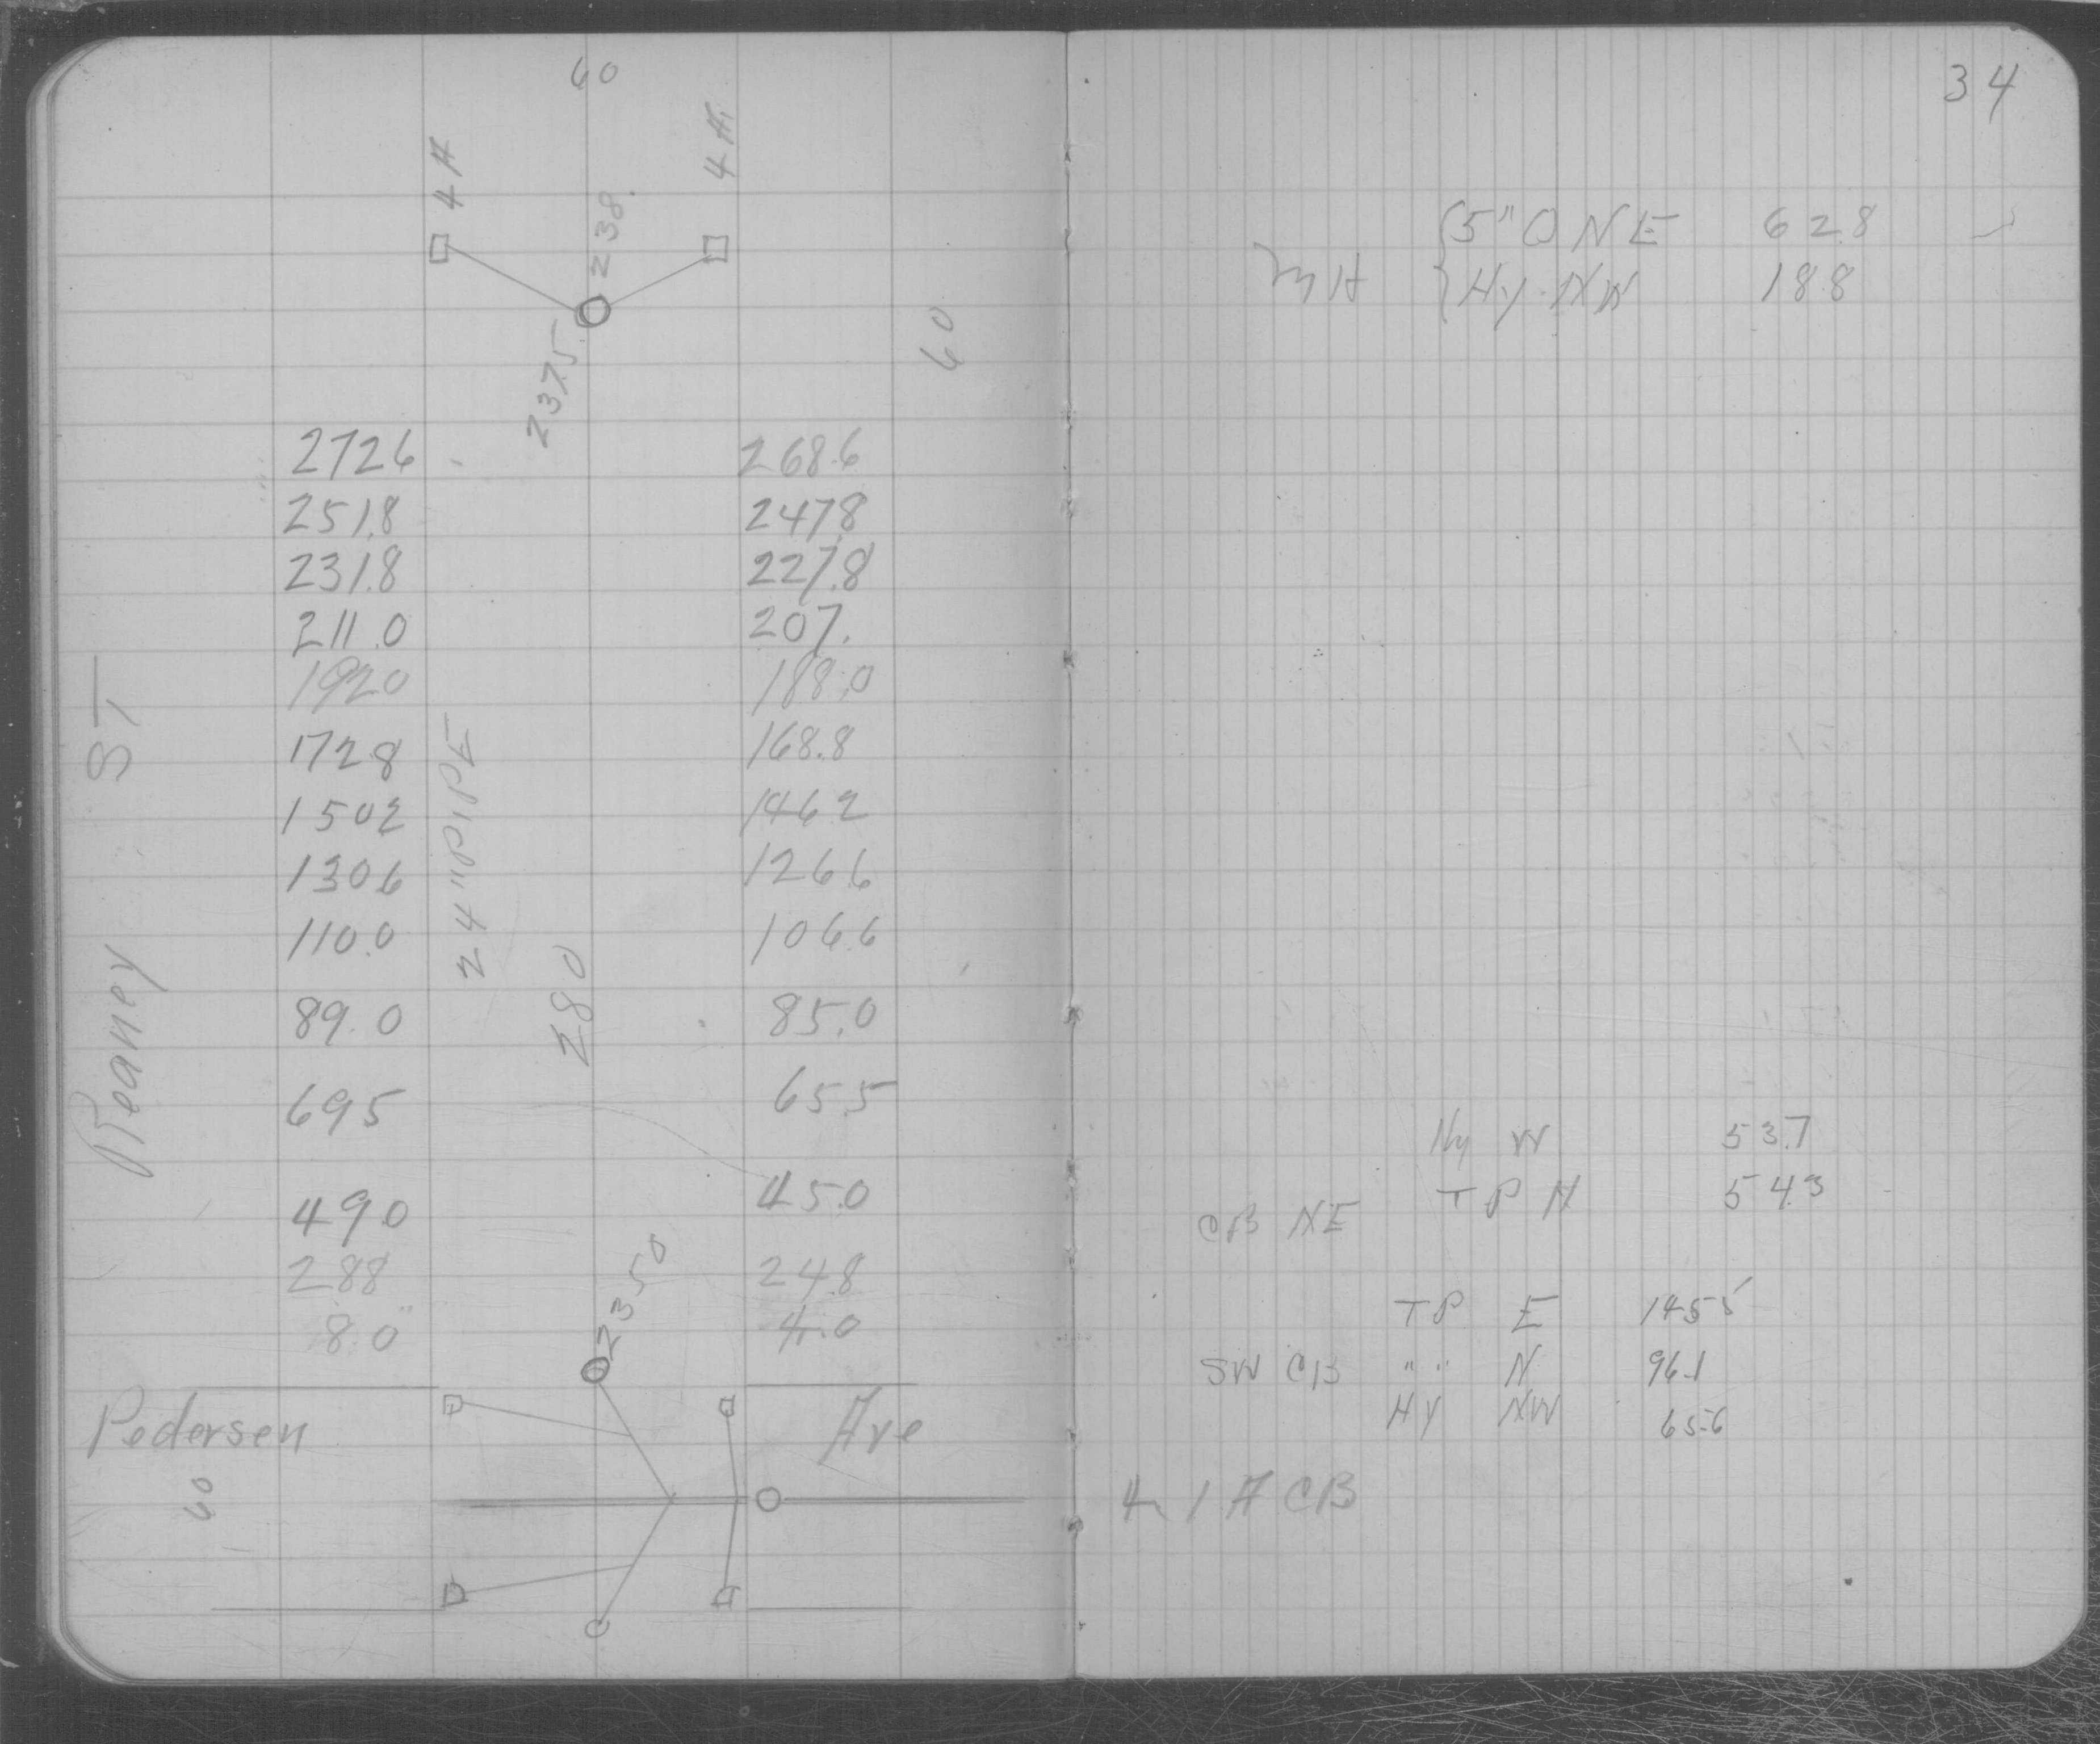 60
4 A
4 A
238.
237.5
60
272.6 268.6
251.8 247.8
231.8 227.8
211.0 207.
192.0 188.0
172.8 168.8
150.2 146.2
130.6 126.6
110.0 106.6
89.0 85.0
69.5 65.5
49.0 45.0
28.8 24.8
8.0 4.0
24" PIPE
280
Reaney ST
23 50
Pedersen Ave
60
34
5" O NE 62.8
MH Hy. NW 18.8
Hy W 53.7
TP N 54.3
CB NE
TP E 145.5
SW CB " " N 96.1
HY NW 65.6
1 A CB